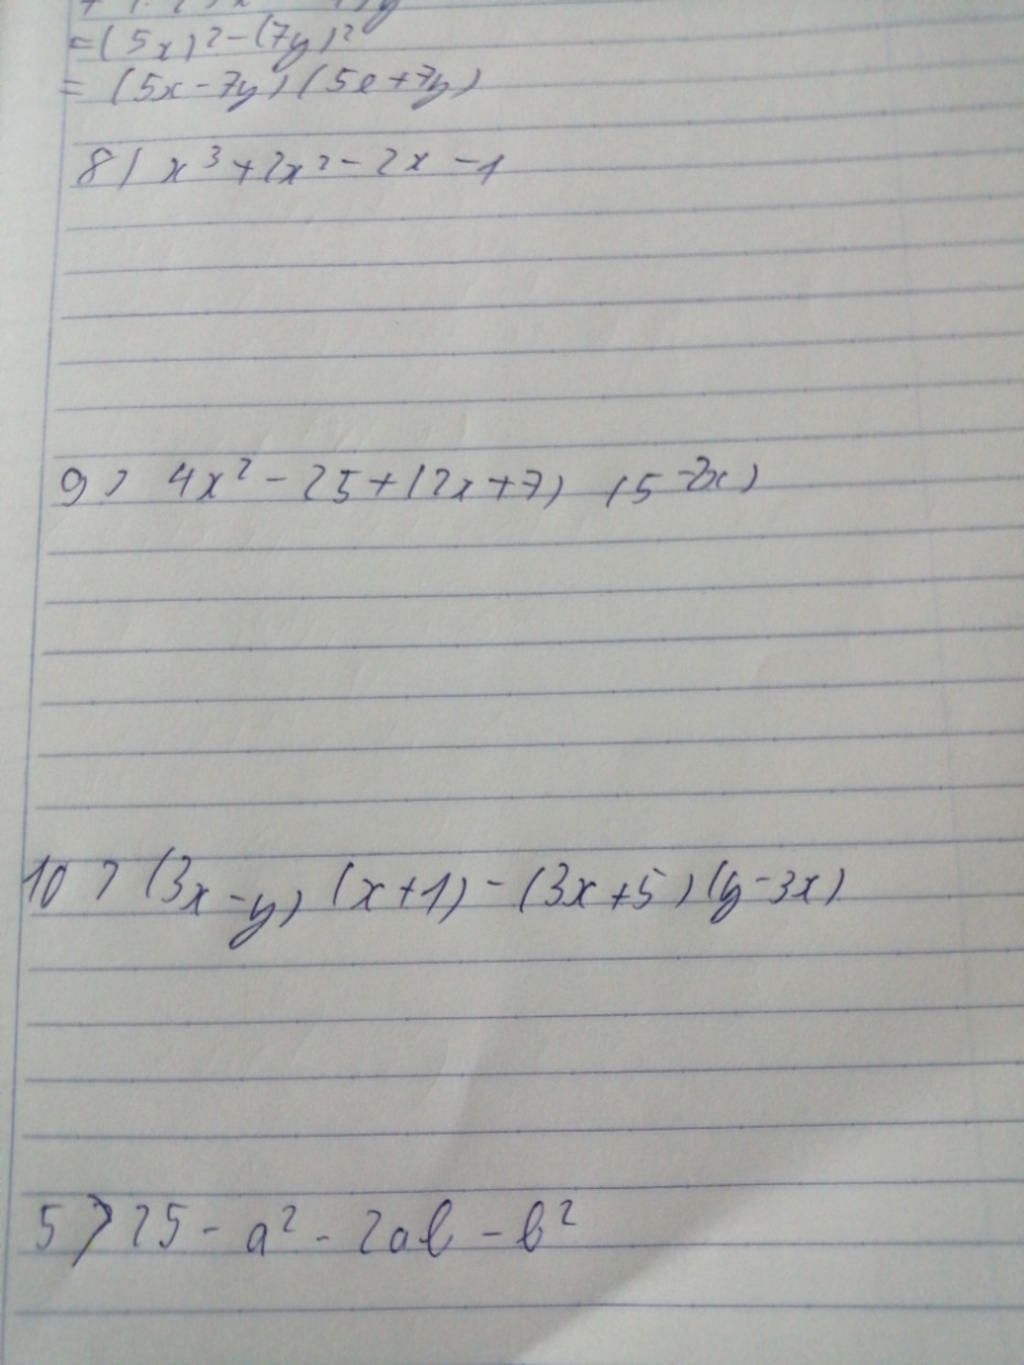 =(5x)²-(7y)²
= (5x-7y)(5x+7y)
8) x³+2x²-2x-1
9) 4x²-25+(2x+7) (5-2x)
10) (3x-y) (x+1)-(3x+5)(y-3x)
5) 25-a²-2ab-b²